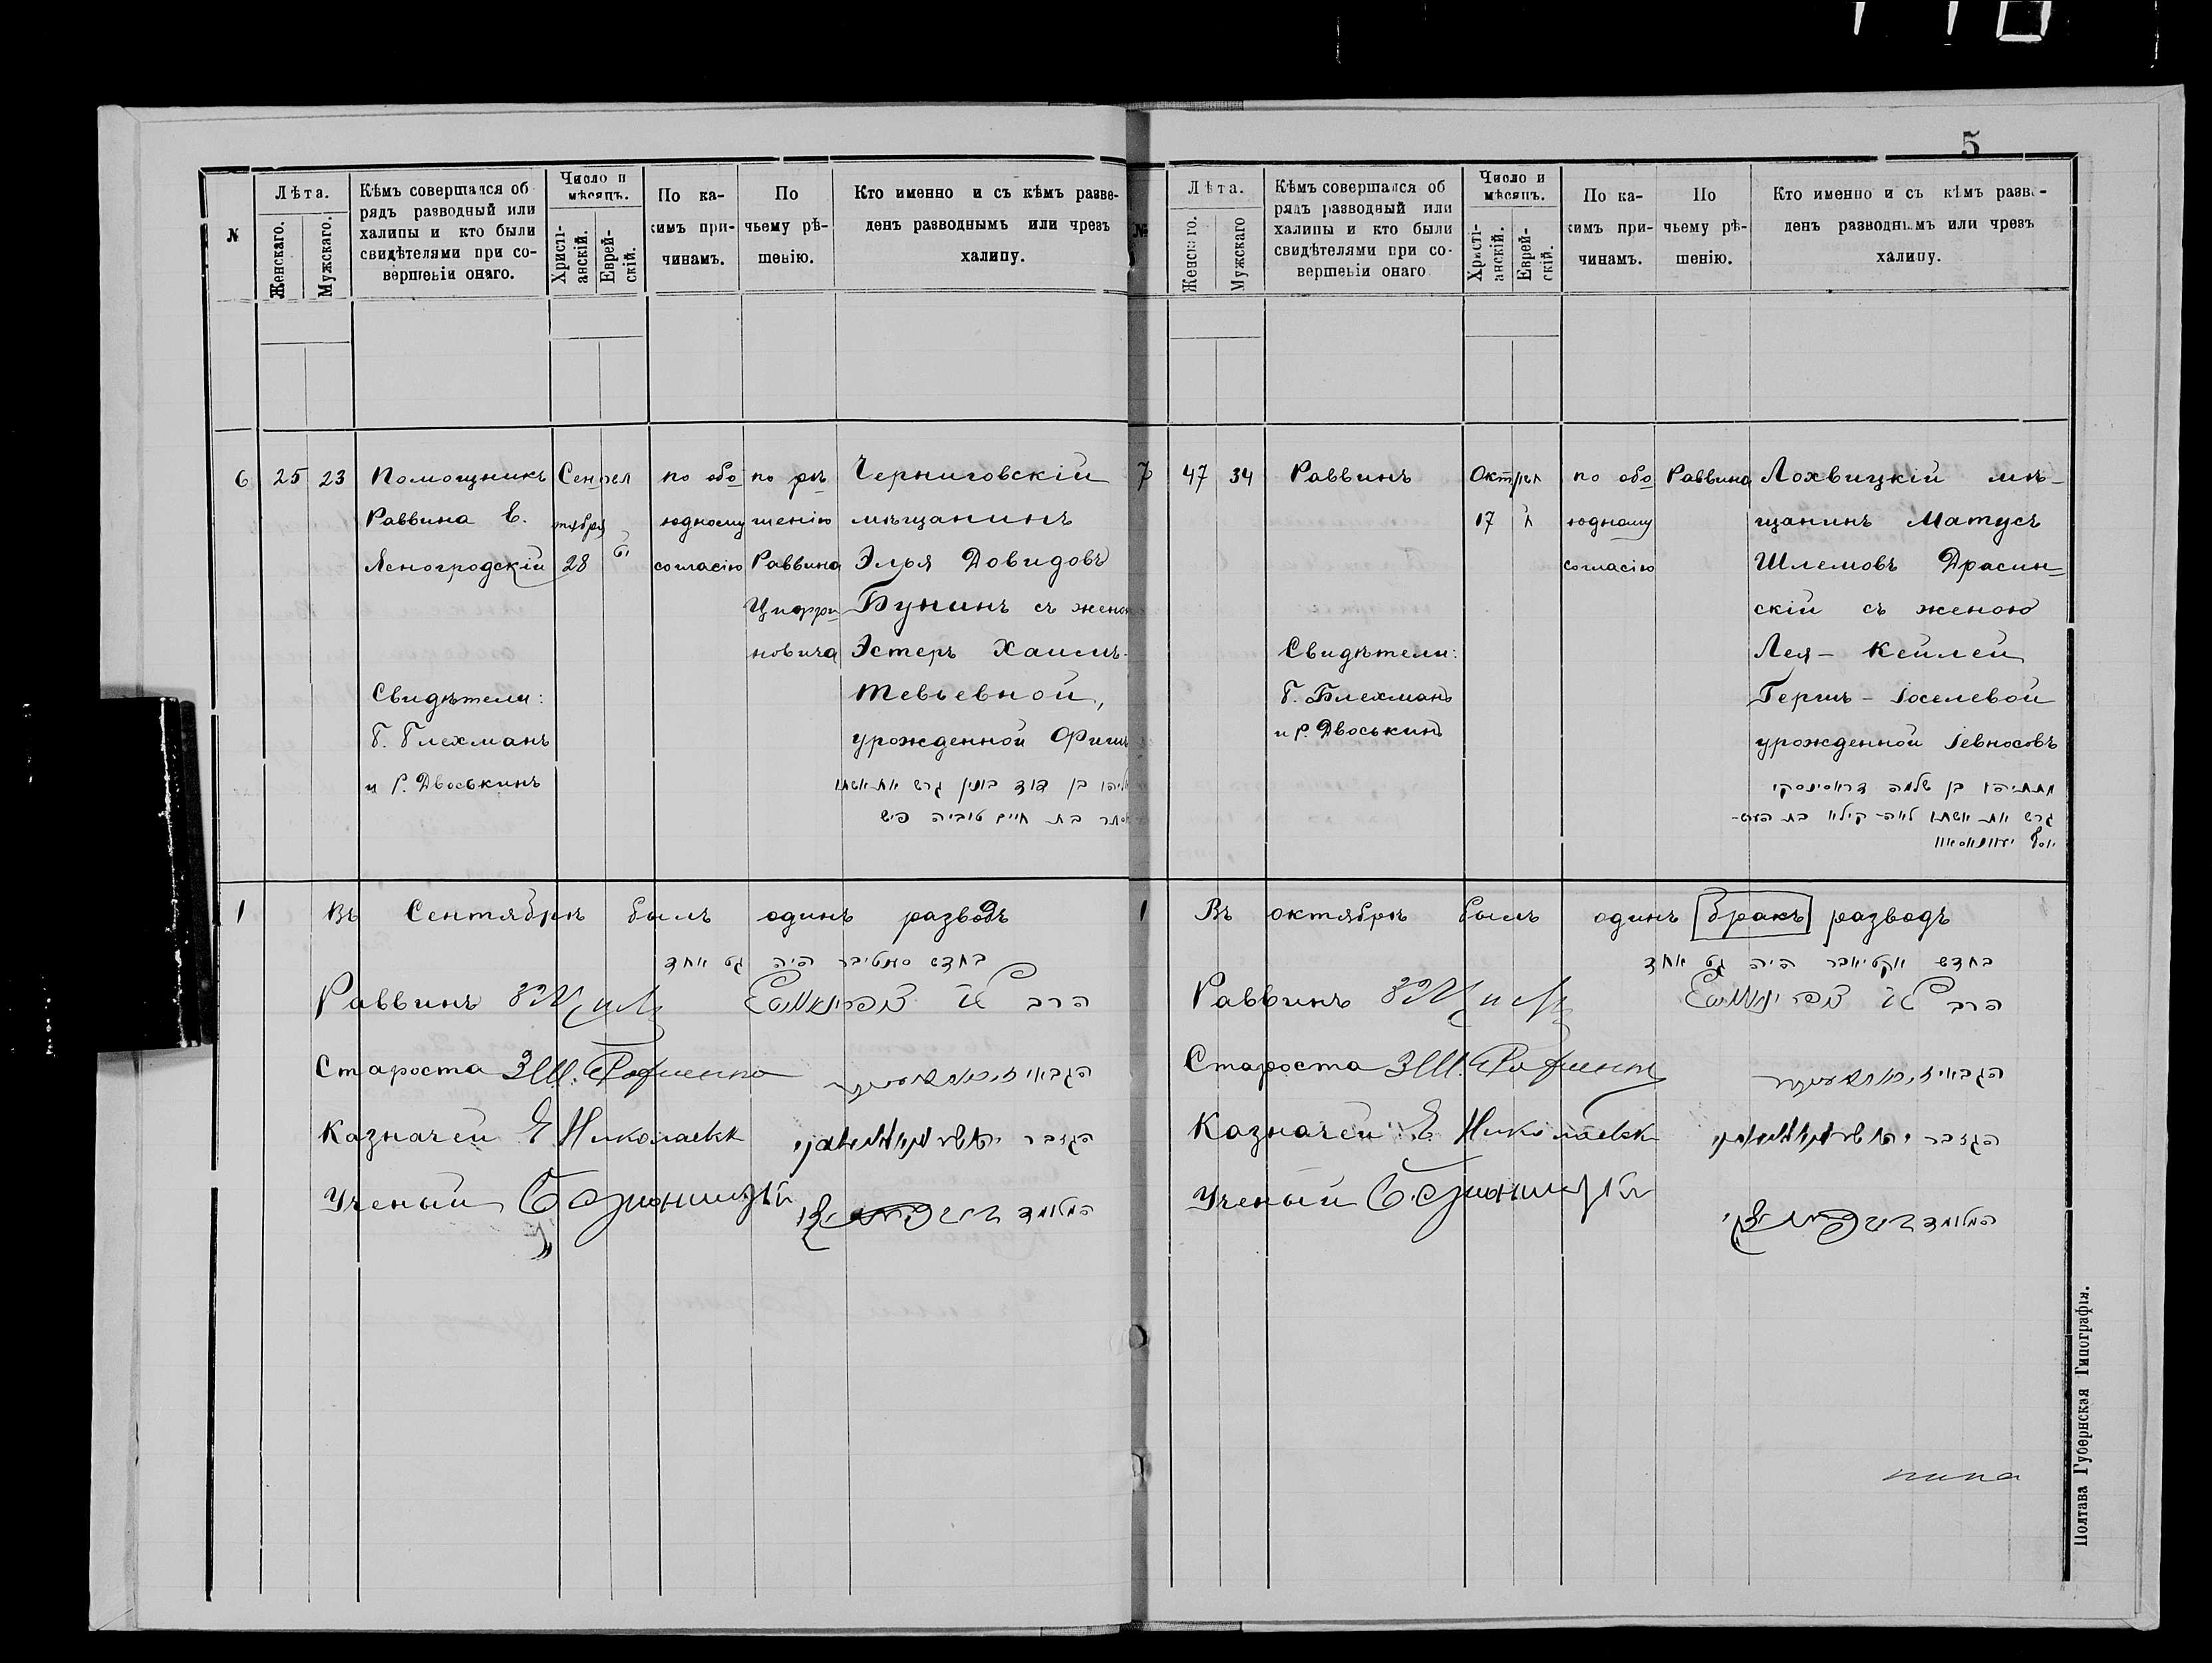 5
№
Лѣта.
Женскаго.
Мужскаго.
Кѣмъ совершался об
рядъ разводный или
халицы и кто были
свидѣтелями при со-
вершеніи онаго.
Число и
мѣсяцъ.
Христі-
анскій.
Еврей-
скій.
По ка-
кимъ при-
чинамъ.
По
чьему рѣ-
шенію.
Кто именно и съ кѣмъ разве-
денъ разводнымъ или чрезъ
халицу.
6 25 23
Помощникъ
Раввина Е.
Леногродскій
Свидѣтели:
Г. Блехманъ
и Р. Двоськинъ
Сен
тября
28
по обо
юдному
согласію
по рѣ
шенію
Раввина
Циффри
новича
Черниговскій
мѣщанинъ
Элья Довидовъ
Бунинъ съ женою
Эстеръ Хаимъ-
Тевьевной,
урожденной Фишъ
בן דוד בונין גרש את אשתו
בת חיים טוביה פיש
1 Въ Сентябрѣ былъ одинъ разводъ
בחדש סנטיבר היה גט אחד
Раввинъ
הרב
Староста З Ш.
הגבאי
Казначей Е Николаевск
הגזבר
Ученый
המלומד
№
Лѣта.
Женскаго.
Мужскаго
Кѣмъ совершался об
рядъ разводный или
халицы и кто были
свидѣтелями при со-
вершеніи онаго
Число и
мѣсяцъ.
Христі-
анскій.
Еврей-
скій.
По ка-
кимъ при-
чинамъ.
По
чьему рѣ-
шенію.
Кто именно и съ кѣмъ разве-
денъ разводнымъ или чрезъ
халицу.
7 47 34
Раввинъ
Свидѣтели:
Г. Блехманъ
и Р. Двоськинъ
Окт
17
по обо
юдному
согласію
Раввина
Лохвицкій мѣ-
щанинъ Матусъ
Шлемовъ Драсин-
скій съ женою
Лея-Кейлей
Гершъ-Іоселевой
урожденной Іевносовъ
מתתיהו בן שלמה דראסינסקי
גרש את אשתו לאה-קילא בת הערש-
יוסף
1 Въ октябрѣ былъ одинъ бракъ разводъ
בחדש אקטיאבר היה גט אחד
Раввинъ
הרב
Староста З Ш.
הגבאי
Казначей Е Николаевск
הגזבר
Ученый
המלומד
Полтава Губернская Типографія.